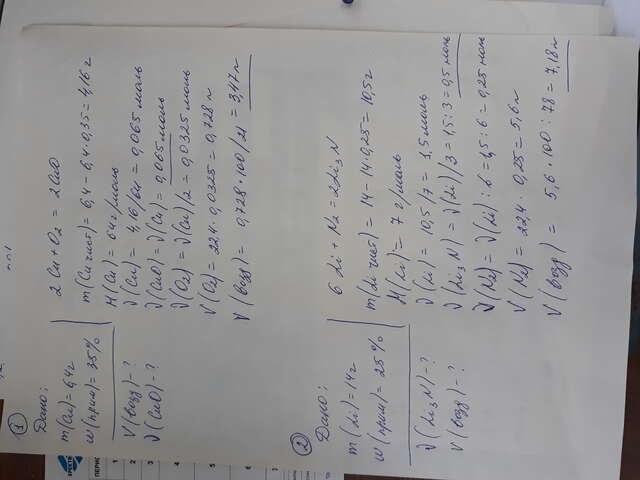 1
Дано:
m(Cu)=6,4г
w(прим)=35%
V(возд)-?
ν(CuO)-?
2Cu+O2 = 2CuO
m(Cu чист)=6,4-6,4·0,35=4,16г
M(Cu)=64г/моль
ν(Cu)= 4,16/64=0,065 моль
ν(CuO)=ν(Cu)=0,065моль
ν(O2)=ν(Cu)/2=0,0325 моль
V(O2)= 22,4·0,0325=0,728 л
V(возд)= 0,728·100/21 =3,47л
2
Дано:
m(Li)=14г
w(прим)= 25%
ν(Li3N)-?
V(возд)-?
6Li+N2=2Li3N
m(Li чист)=14-14·0,25=10,5г
M(Li)= 7 г/моль
ν(Li)= 10,5/7= 1,5моль
ν(Li3N)=ν(Li)/3=1,5:3=0,5 моль
ν(N2)=ν(Li):6=1,5:6=0,25 моль
V(N2)= 22,4· 0,25=5,6л
V(возд) = 5,6·100:78=7,18л
СПЕКТР
ПЕРИО
1
2
3
5
6